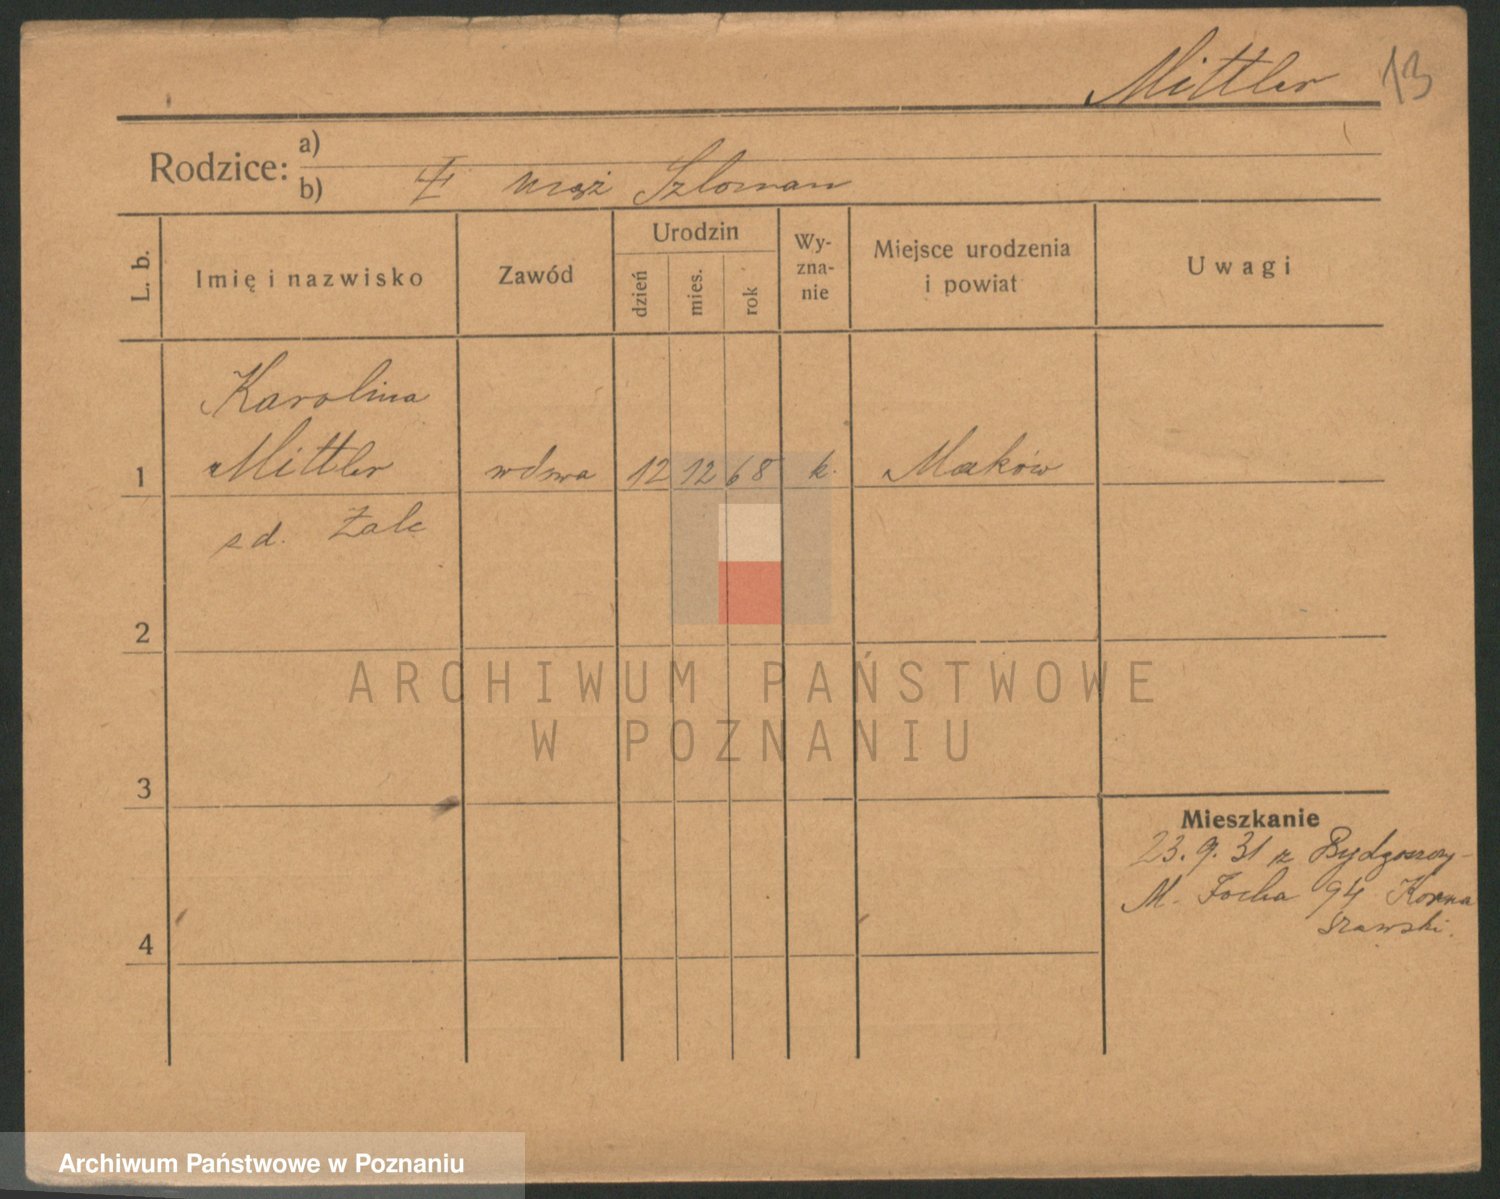 Mittler 13
Rodzice: a)
b) mąż Szloman
L. b.
Imię i nazwisko
Zawód
Urodzin
dzień
mies.
rok
Wy-
zna-
nie
Miejsce urodzenia
i powiat
Uwagi
Karolina
1 Mittler wdowa 12 12 68 k. Maków
z d. Zalc
2
ARCHIWUM PAŃSTWOWE
W POZNANIU
3
Mieszkanie
23. 9. 31 z Bydgoszczy
M. Focha 94
4
Archiwum Państwowe w Poznaniu